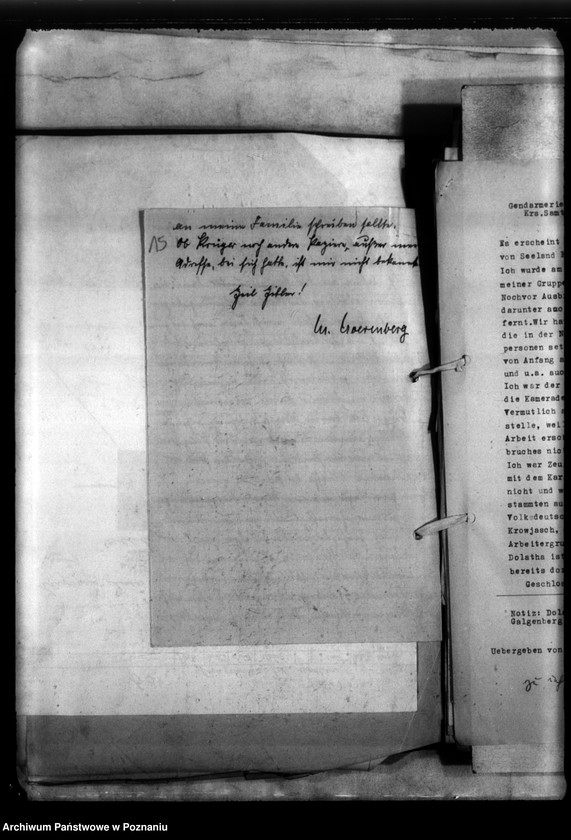 an meine Familie schreiben sollte.
15
Ob Krüger noch andere Papiere, außer meiner
Adresse, bei sich hatte, ist mir nicht bekannt.
Heil Hitler!
Gendarmerie
Krs.Samt
Es erscheint
von Seeland
Ich wurde am
meiner Gruppe
Nochvor Ausb
darunter auc
fernt.Wir ha
die in der N
personen set
von Anfang a
und u.a. auc
Ich war der
die Kamerade
Vermutlich
stelle, wei
Arbeit ersc
bruches nic
Ich war Zeu
mit dem Kar
nicht und w
stammten au
Volksdeutsc
Krowjasch,
Arbeitergru
Dolatha ist
bereits do
Geschlo
Notiz: Dol
Galgenberg
Uebergeben von
Archiwum Państwowe w Poznaniu